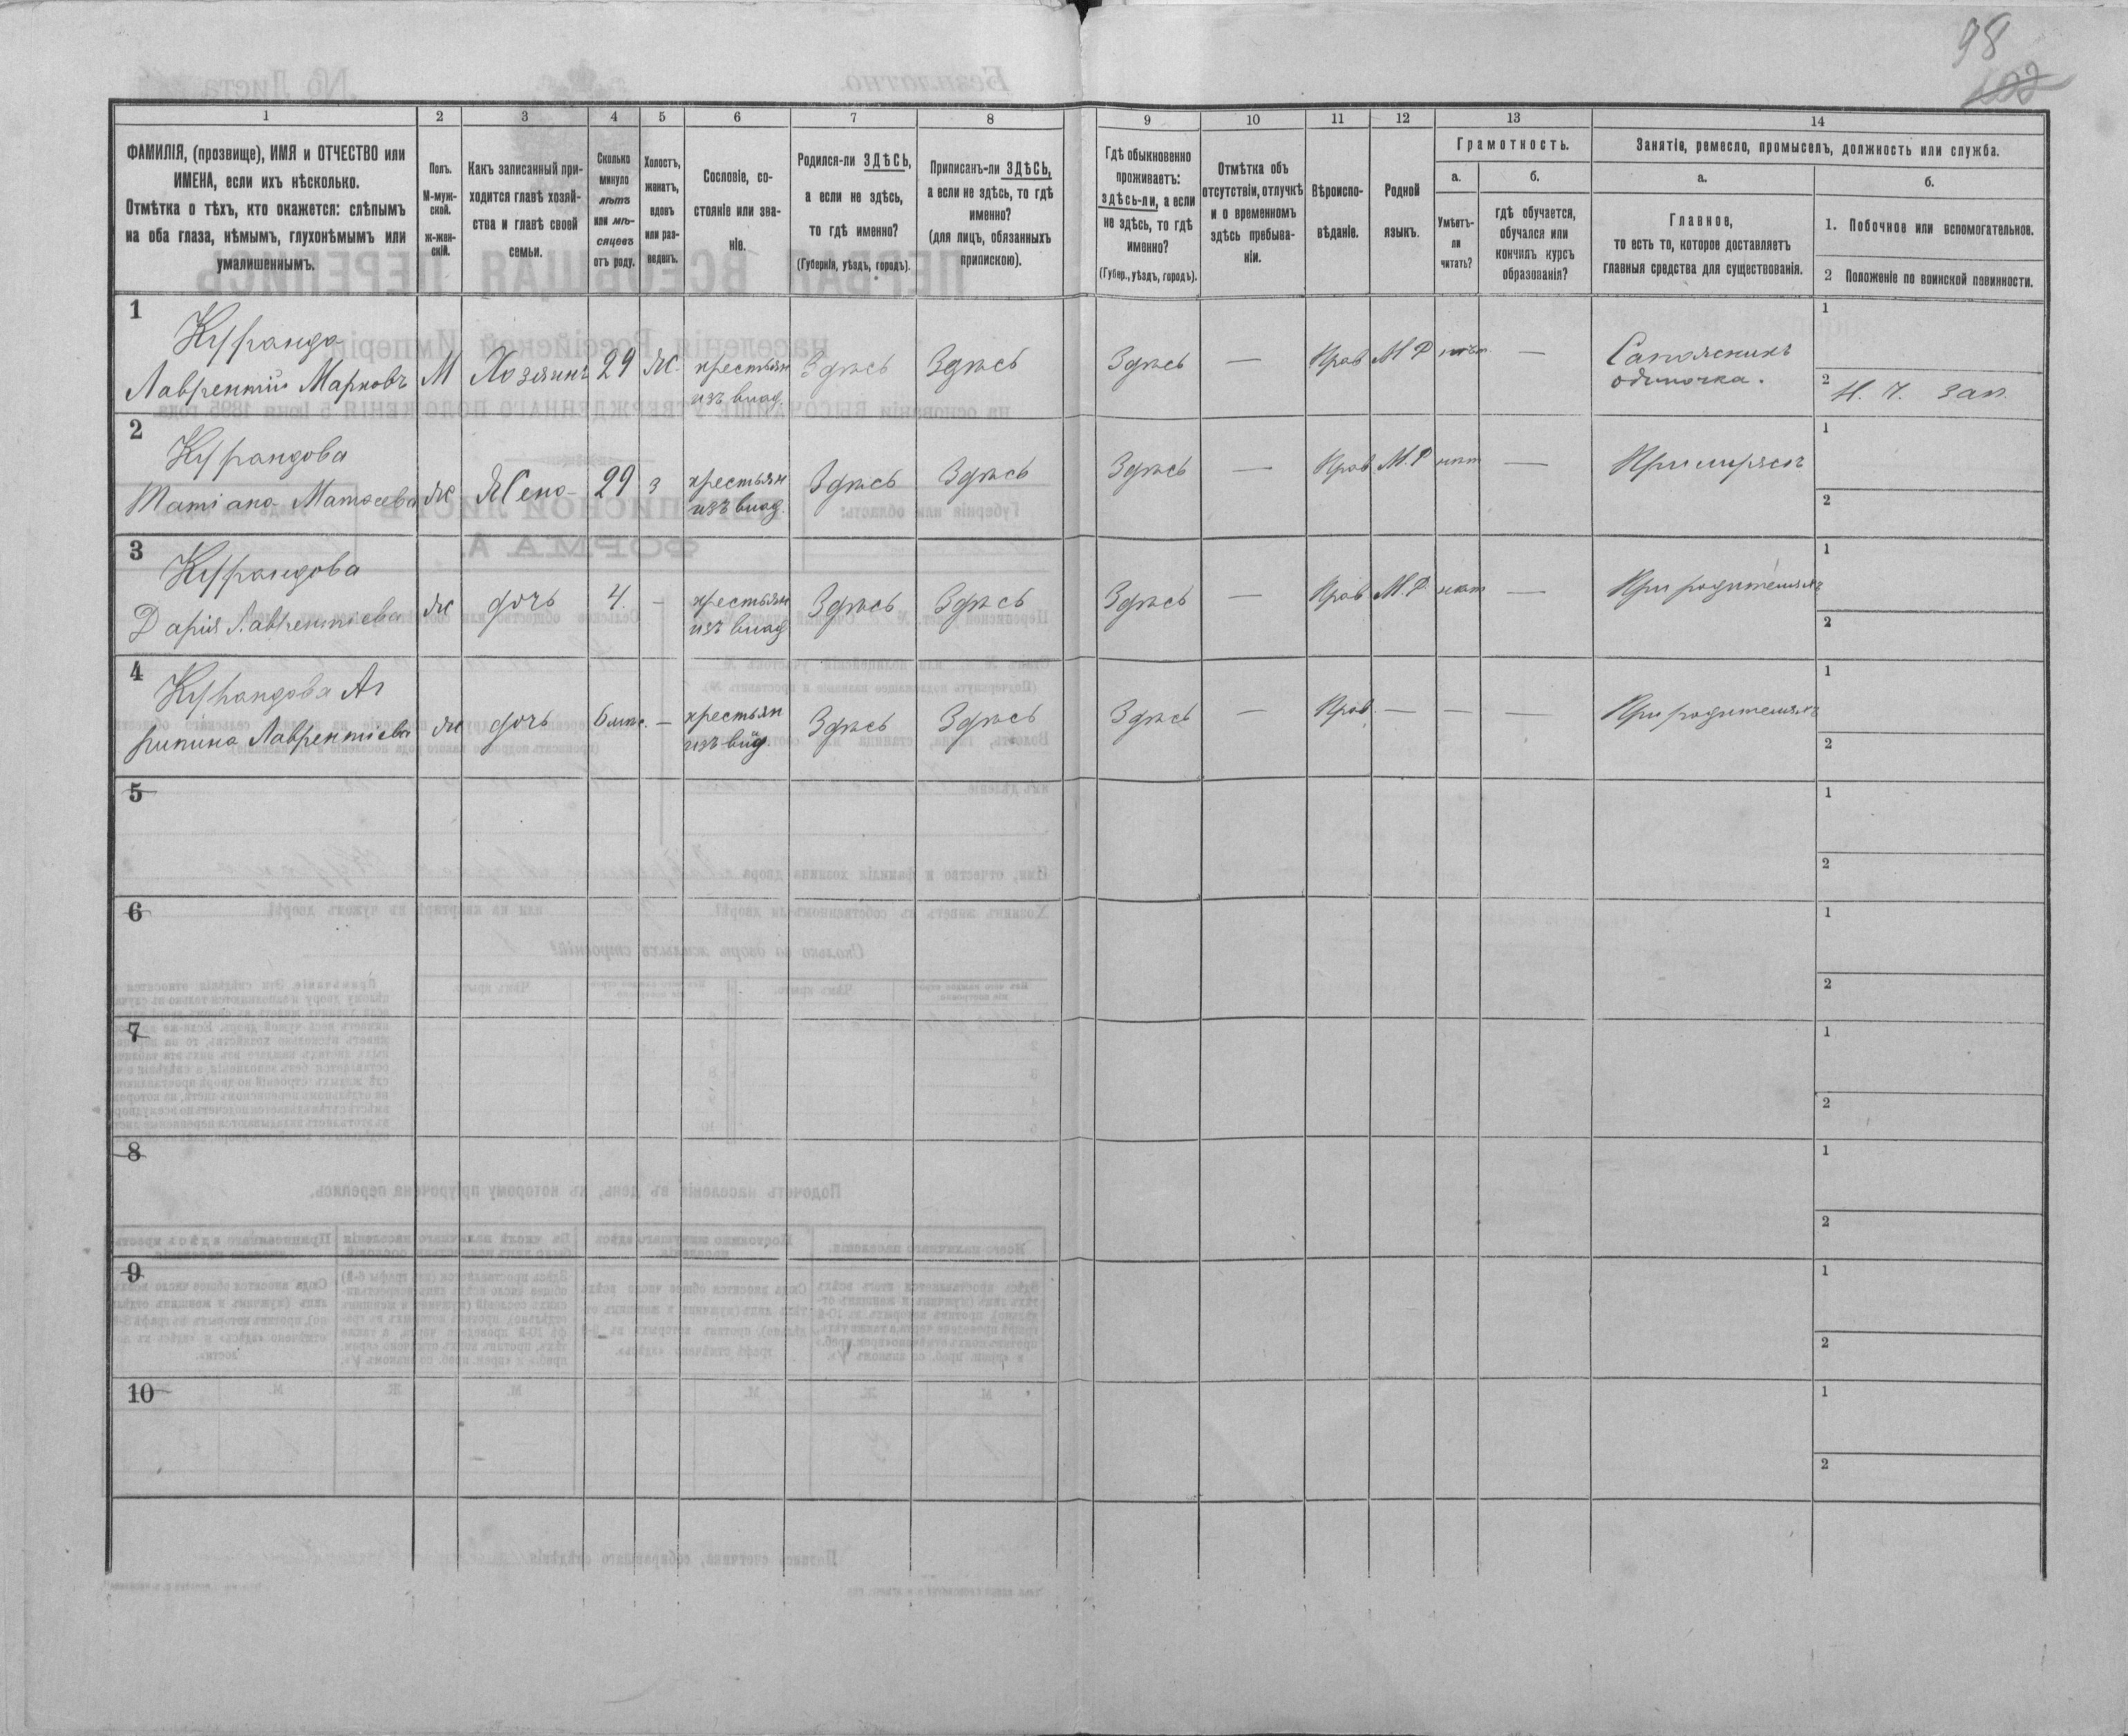 98
1 2 3 4 5 6 7 8 9 10 11 12 13 14
ФАМИЛІЯ, (прозвище), ИМЯ и ОТЧЕСТВО или
ИМЕНА, если ихъ нѣсколько.
Отмѣтка о тѣхъ, кто окажется: слѣпымъ
на оба глаза, нѣмымъ, глухонѣмымъ или
умалишеннымъ.
Полъ.
М-муж-
ской.
Ж-жен-
скій.
Какъ записанный при-
ходится главѣ хозяй-
ства и главѣ своей
семьи.
Сколько
минуло
лѣтъ
или мѣ-
сяцевъ
отъ роду.
Холостъ,
женатъ,
вдовъ
или раз-
веденъ.
Сословіе, со-
стояніе или зва-
ніе.
Родился-ли ЗДѢСЬ,
а если не здѣсь,
то гдѣ именно?
(Губернія, уѣздъ, городъ).
Приписанъ-ли ЗДѢСЬ,
а если не здѣсь, то гдѣ
именно?
(для лицъ, обязанныхъ
припискою).
Гдѣ обыкновенно
проживаетъ:
здѣсь-ли, а если
не здѣсь, то гдѣ
именно?
(Губер., уѣздъ, городъ).
Отмѣтка объ
отсутствіи, отлучкѣ
и о временномъ
здѣсь пребыва-
ніи.
Вѣроиспо-
вѣданіе.
Родной
языкъ.
Грамотность.
а.
Умѣетъ-
ли
читать?
б.
гдѣ обучается,
обучался или
кончилъ курсъ
образованія?
Занятіе, ремесло, промыселъ, должность или служба.
а.
Главное,
то есть то, которое доставляетъ
главныя средства для существованія.
б.
1. Побочное или вспомогательное.
2 Положеніе по воинской повинности.
1
Куранда
Лаврентій Марковъ М Хозяинъ 29 Ж. крестьян
изъ влад. Здѣсь Здѣсь Здѣсь — Прав М.Р нѣт —
одиночка.
1
2
зап.
2
Курандова
Татіана Матвеева Ж Жена 29 з крестьян
изъ влад. Здѣсь Здѣсь Здѣсь — Прав М.Р нѣт — При мужѣ
1
2
3
Курандова
Дарія Лаврентіева Ж дочь 4. — крестьян
изъ влад Здѣсь Здѣсь Здѣсь — Прав М.Р. нѣт — При родителяхъ
1
2
4
Курандова Аг
рипина Лаврентіева Ж дочь 6 мѣс. — крестьян
изъ влад. Здѣсь Здѣсь Здѣсь — Прав. — — — При родителяхъ
1
2
5
1
2
6
1
2
7
1
2
8
1
2
9
1
2
10
1
2